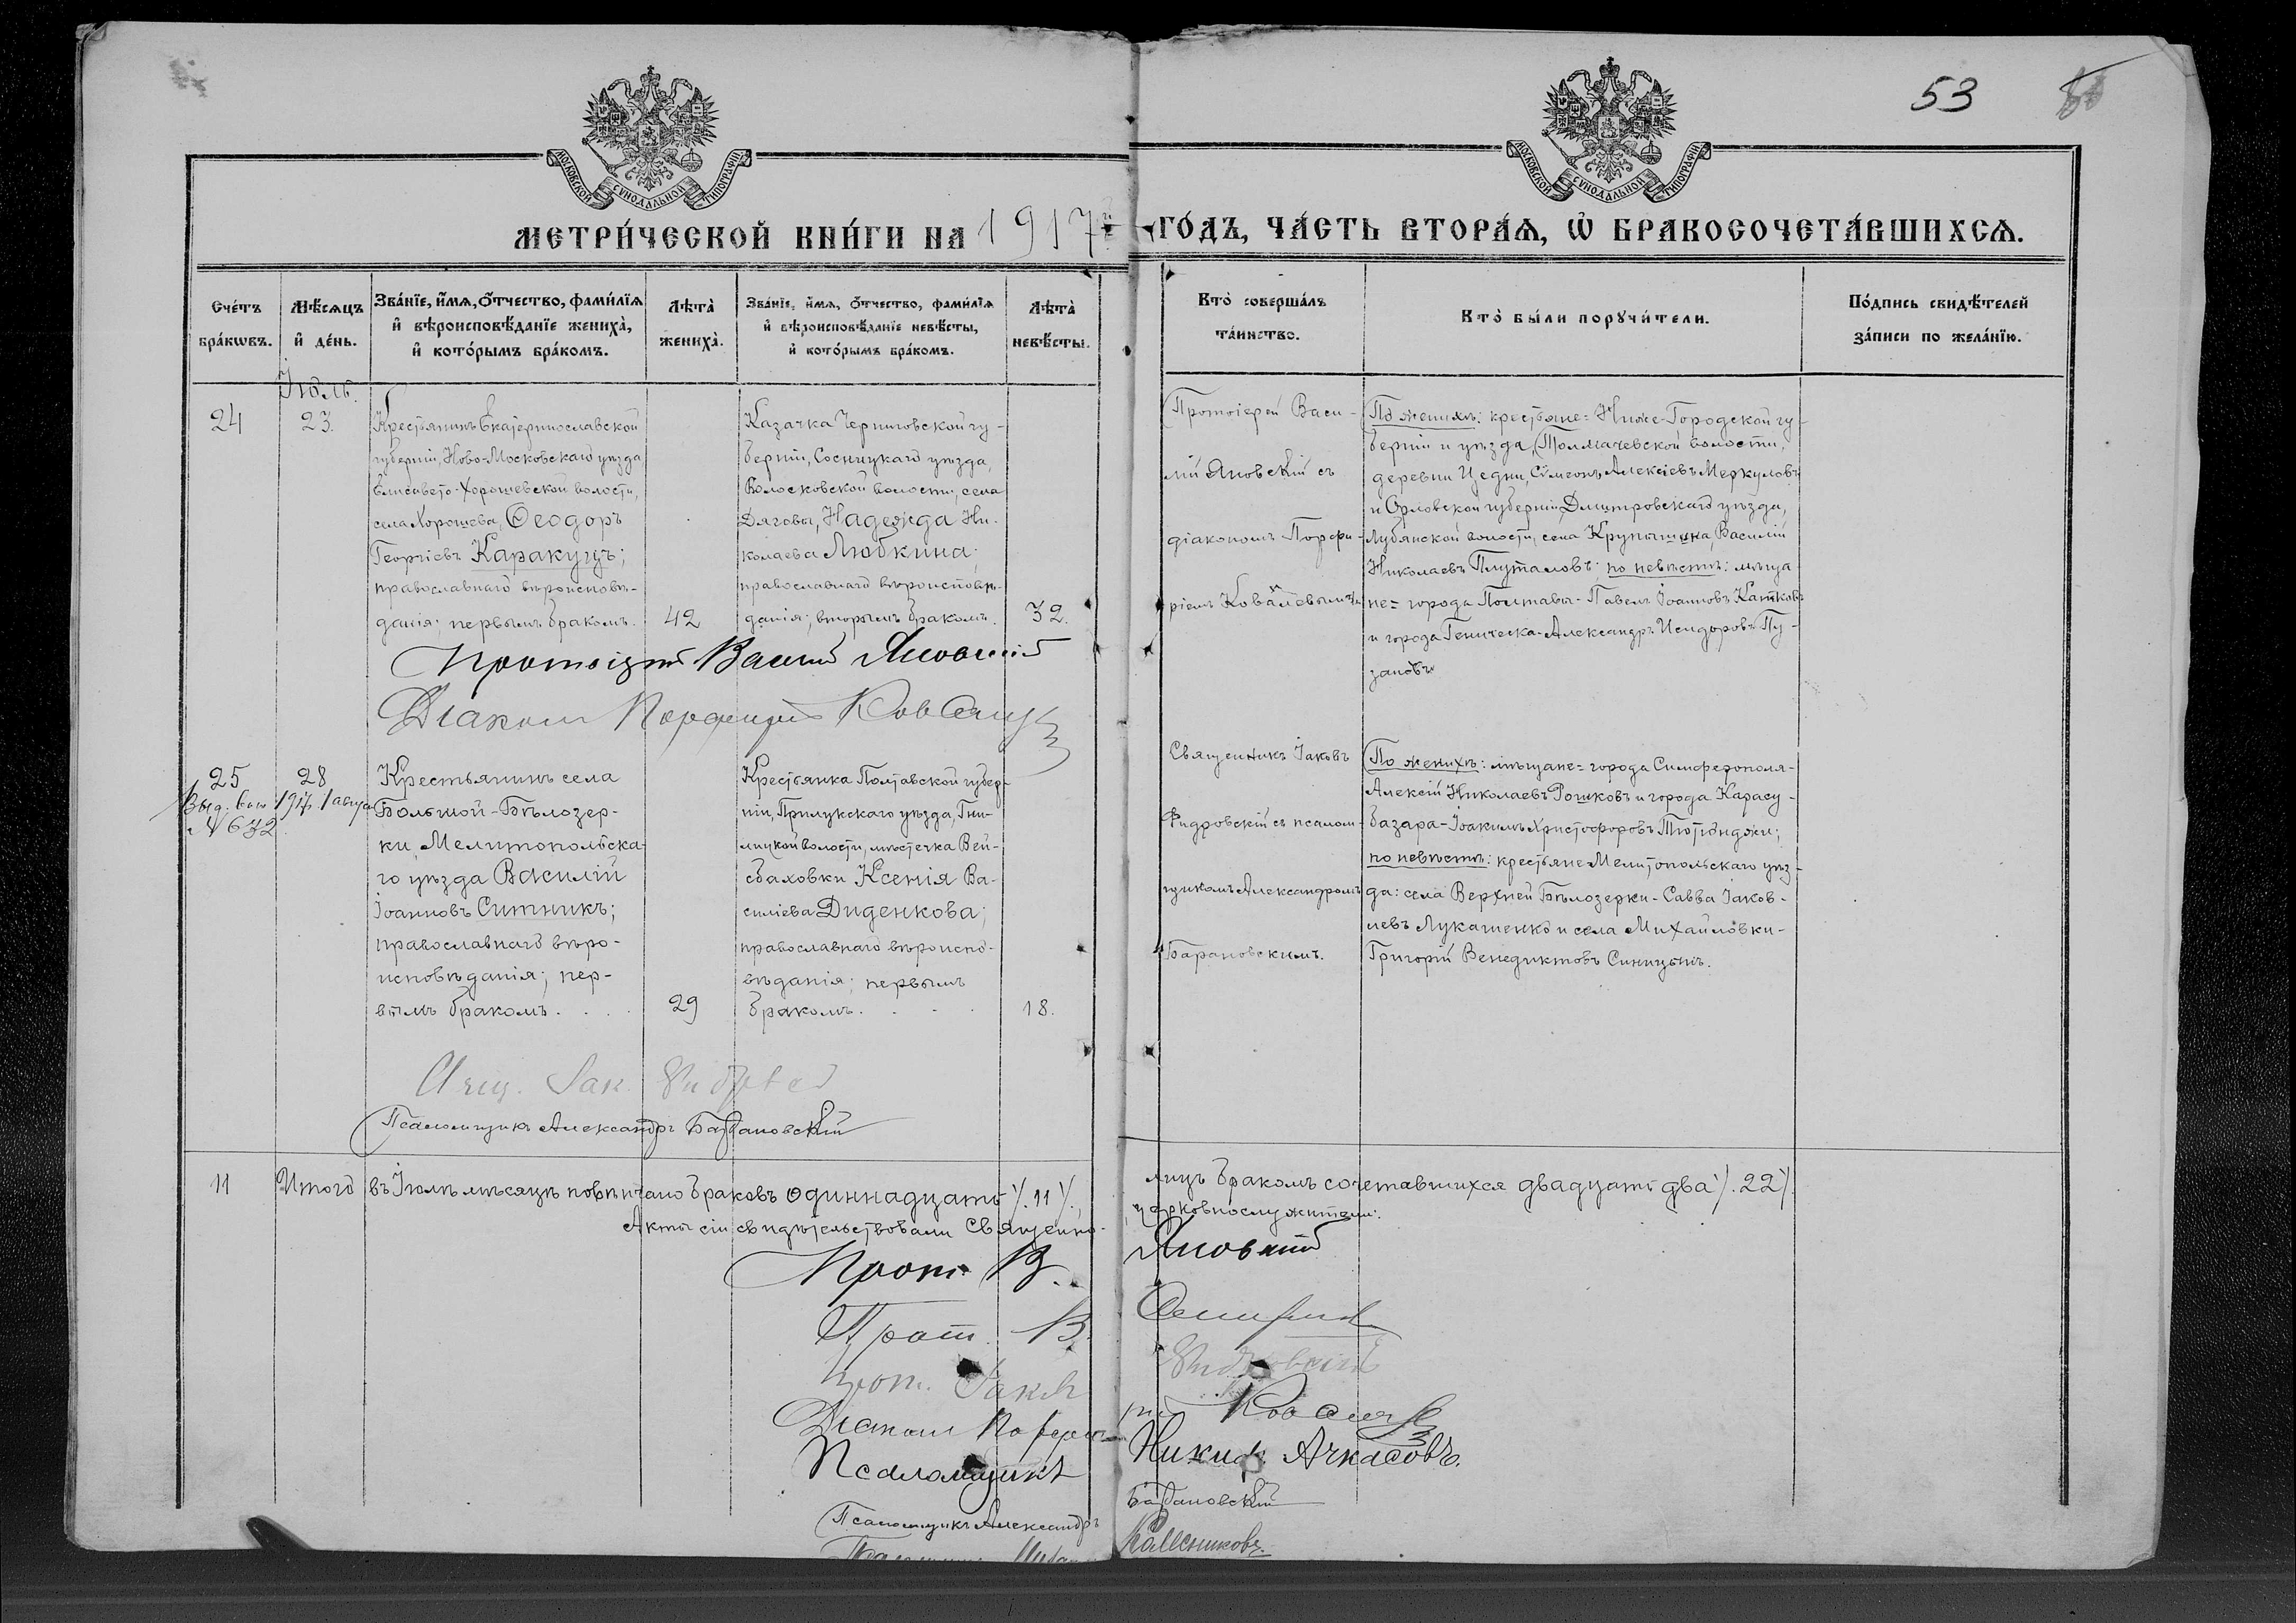 53
МОСКОВСКОЙ СУНОДАЛЬНОЙ ТИПОГРАФІИ
МОСКОВСКОЙ СУНОДАЛЬНОЙ ТИПОГРАФІИ
МЕТРИ́ЧЕСКОЙ КНИ́ГИ НА 1917й
ГО́ДЪ, ЧА́СТЬ ВТОРА́Я, Ѽ БРАКОСОЧЕТА́ВШИХСЯ.
Сче́тъ
бра́кѡвъ.
Мѣ́сяцъ
и҆ де́нь.
Зва́нїе, и҆́мя, ѻ҆́тчество, фами́лїя
и҆ вѣроисповѣ́данїе жениха̀,
и҆ кото́рымъ бра́комъ.
Лѣта̀
жениха̀.
Зва́нїе, и҆́мя, ѻ҆́тчество, фами́лїя
и҆ вѣроисповѣ́данїе невѣ́сты,
и҆ кото́рымъ бра́комъ.
Лѣта̀
невѣ́сты.
Кто̀ соверша́лъ
та́инство.
Кто̀ бы́ли порꙋчи́тели.
По́дпись свидѣ́телей
за́писи по жела́нїю.
Іюль.
24
23.
Крестьянинъ Екатеринославской
губерніи, Ново-Московскаго уѣзда,
Елисавето-Хорошевской волости,
села Хорошева, Ѳеодоръ
Георгіевъ Каракуцъ;
православнаго вѣроисповѣ-
данія; первымъ бракомъ.
42
Казачка Черниговской гу-
берніи, Сосницкаго уѣзда,
Волосковской волости, села
Дяговы, Надежда Ни-
колаева Любкина;
православнаго вѣроисповѣ-
данія; вторымъ бракомъ.
32.
Протоіерей Васи-
лій Яновскій съ
діакономъ Порфи-
ріемъ Ковалевымъ
По женихѣ: крестьяне= Ниже-Городской гу-
берніи и уѣзда, Толмачевской волости,
деревни Цедни, Сѵмеонъ Алексіевъ Меркуловъ
и Орловской губерніи, Дмитровскаго уѣзда,
Лубянской волости, села Крупышина, Василій
Николаевъ Плуталовъ; по невѣстѣ: мѣща
не= города Полтавы- Павелъ Іоанновъ Катковъ
и города Геническа- Александръ Исидоровъ Пу-
зановъ
Протоіерей Василій Яновскій
Діаконъ Порфирій Ковалевъ
25
28
Выд. вып 1917г. 1 августа
N 632
Крестьянинъ села
Большой-Бѣлозер-
ки, Мелитопольска-
го уѣзда Василій
Іоанновъ Ситникъ;
православнаго вѣро-
исповѣданія; пер-
вымъ бракомъ. . . .
29
Крестьянка Полтавской губер-
ніи, Прилукскаго уѣзда, Гни-
лицкой волости, мѣстечка Вей-
сбаховки Ксенія Ва-
силіева Диденкова;
православнаго вѣроиспо-
вѣданія; первымъ
бракомъ. . . .
18.
Священникъ Іаковъ
Фидровскій съ псалом-
щикомъ Александромъ
Барановскимъ.
По женихѣ: мѣщане= города Симферополя-
Алексій Николаевъ Рошковъ и города Карасу-
базара- Іоакимъ Христофоровъ Тютюнджи;
по невѣстѣ: крестьяне Мелитопольскаго уѣз-
да: села Верхней Бѣлозерки- Савва Іаков-
левъ Лукашенко и села Михайловки-
Григорій Венедиктовъ Синицынъ.
Псаломщикъ Александръ Барановскій
11
Итого въ Іюлѣ мѣсяцѣ повѣнчано браковъ одиннадцать /.11/.,
лицъ бракомъ сочетавшихся двадцать два /.22/.
Акты сіи свидѣтельствовали Священно-
церковнослужители:
Прот. В. Яновскій
Прот. В.
Прот. Іаковъ Фидровскій
Діаконъ Порфирій Ковалевъ
Псаломщикъ Никиф. Ачкасовъ.
Псаломщикъ Александръ Барановскій
Калашниковъ.